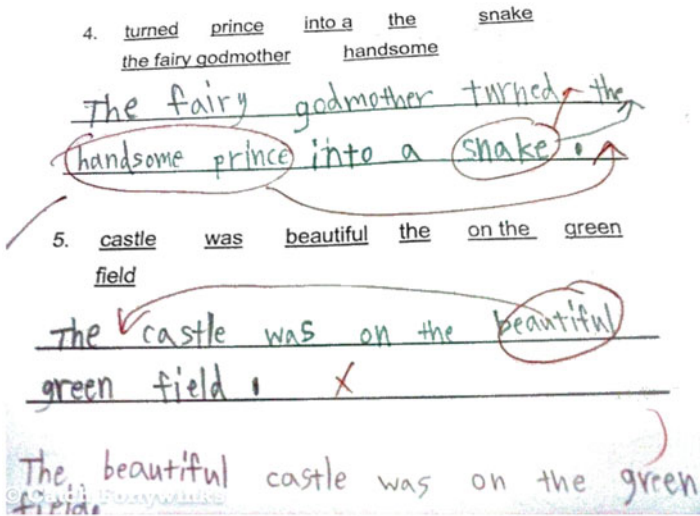 4. turned prince into a the snake
the fairy godmother handsome
The fairy godmother turned the
handsome prince into a snake.
5. castle was beautiful the on the green
field
The castle was on the beautiful
green field.
The beautiful castle was on the green
field.